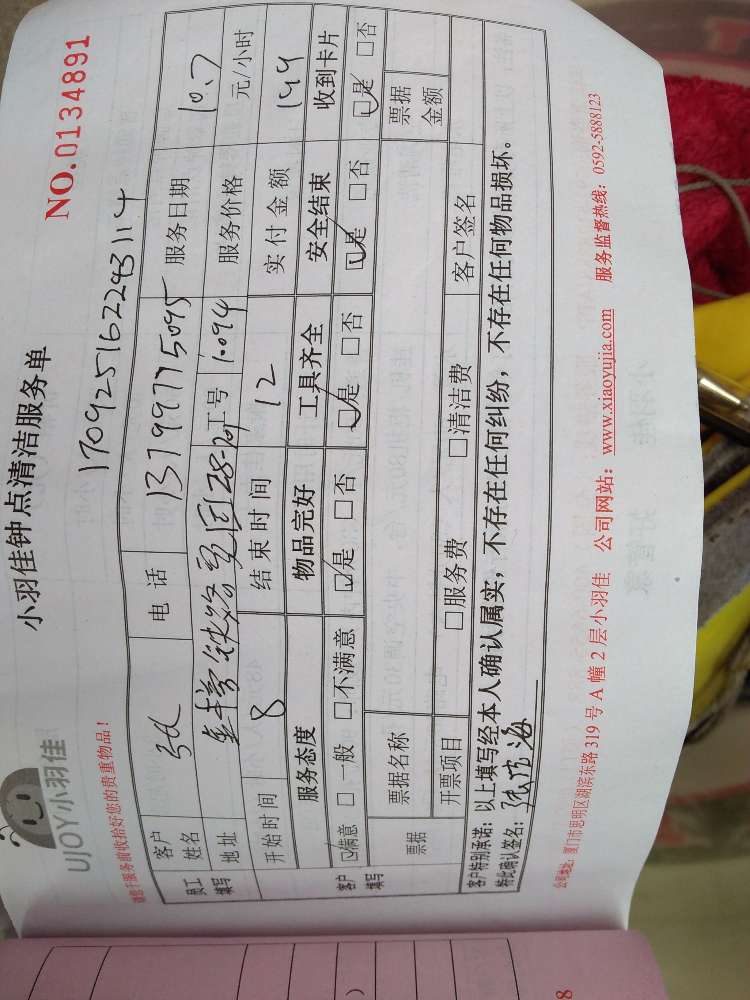 UJOY小羽佳
小羽佳钟点清洁服务单
NO.0134891
请您于服务前收拾好您的贵重物品!
170925162243114
员工填写
客户姓名
电话 13799775095
服务日期 10.7
地址
工号 1094
服务价格 元/小时
开始时间 8
结束时间 12
实付金额 144
客户填写
服务态度 物品完好 工具齐全 安全结束 收到卡片
☑满意 □一般 □不满意 ☑是 □否 ☑是 □否 ☑是 □否 ☑是 □否
票据
票据名称
票据金额
开票项目 □服务费 □清洁费
客户签名
客户特别承诺:以上填写经本人确认属实,不存在任何纠纷,不存在任何物品损坏。
特此确认签名:
公司地址:厦门市思明区湖滨东路319号A幢2层小羽佳 公司网站:www.xiaoyujia.com 服务监督热线:0592-5888123